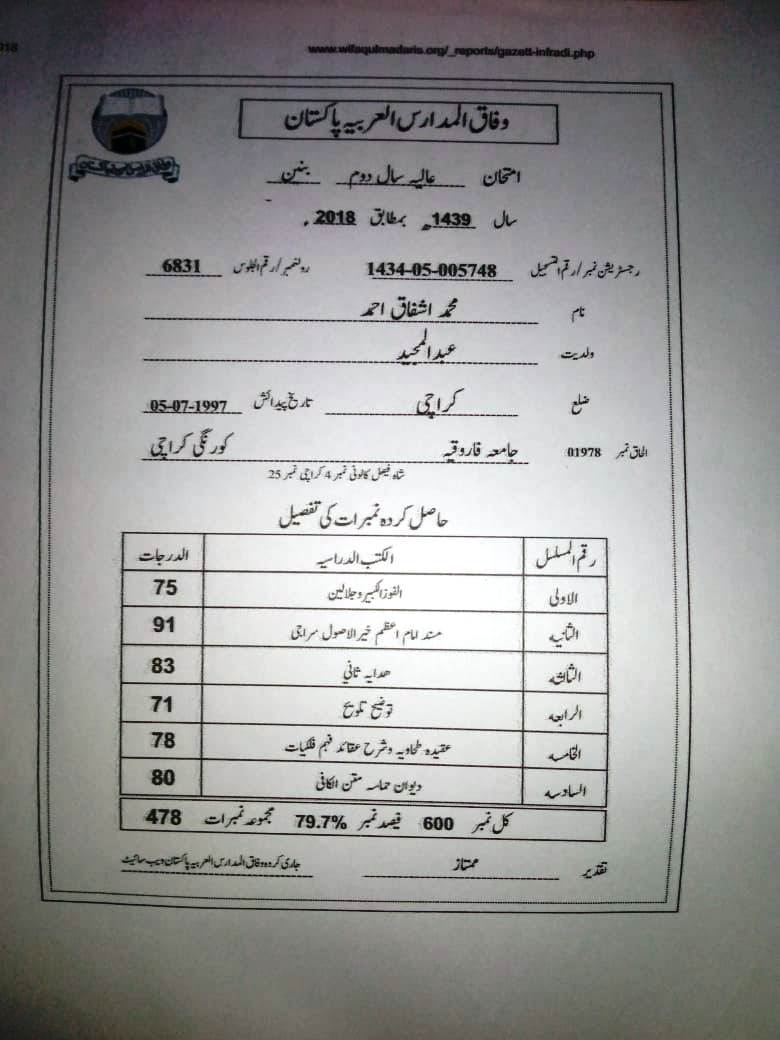 018
www.wifaqulmadaris.org/_reports/gazett-infradi.php
وفاق المدارس العربیہ پاکستان
امتحان عالیہ سال دوم بنین
سال 1439ھ بمطابق 2018ء
رجسٹریشن نمبر/رقم التسجیل 1434-05-005748 رولنمبر/رقم الجلوس 6831
نام محمد اشفاق احمد
ولدیت عبدالمجید
ضلع کراچی تاریخ پیدائش 05-07-1997
الحاق نمبر 01978 جامعہ فاروقیہ کورنگی کراچی
شاہ فیصل کالونی نمبر 4 کراچی نمبر 25
حاصل کردہ نمبرات کی تفصیل
رقم المسلسل الکتب الدراسیہ الدرجات
الاولی الفوزالکبیر وجلالین 75
الثانیہ مسند امام اعظم خیرالاصول سراجی 91
الثالثہ ھدایہ ثانی 83
الرابعہ توضیح تلویح 71
الخامسہ عقیدہ طحاویہ وشرح عقائد فہم فلکیات 78
السادسہ دیوان حماسہ متن الکافی 80
کل نمبر 600 فیصد نمبر 79.7% مجموعہ نمبرات 478
تقدیر ممتاز جاری کردہ وفاق المدارس العربیہ پاکستان ویب سائیٹ